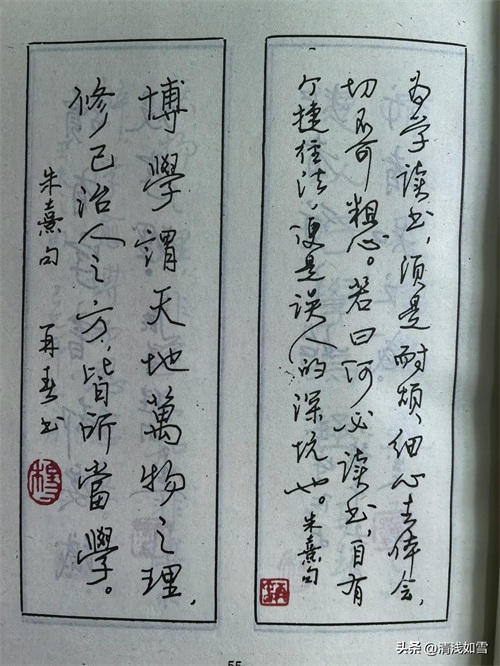 为学读书,须是耐烦,细心去体会,
切不可粗心。若曰何必读书,自有
个捷径法,便是误人的深坑也。朱熹句
博學謂天地萬物之理,
修己治人之方,皆所當學。
朱熹句 再春书
55
头条 @清浅如雪